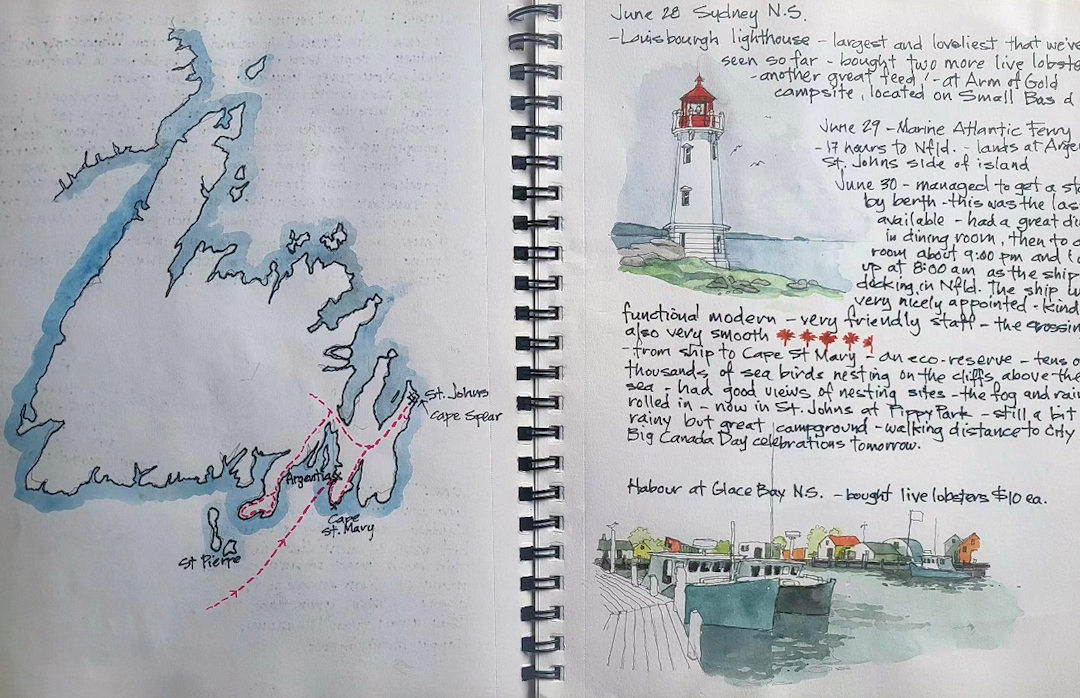 St. Johns
Cape Spear
Argentia
Cape
St. Mary
St Pierre
June 28 Sydney N.S.
- Louisbourgh lighthouse - largest and loveliest that we've
seen so far - bought two more live lobste
- another great feed! - at Arm of Gold
campsite, located on Small Bas d
June 29 - Marine Atlantic Ferry
- 17 hours to Nfld. - lands at Argen
St. Johns side of island
June 30 - managed to get a sta
by berth - this was the las
available - had a great di
in dining room, then to
room about 9:00 pm and
up at 8:00 am as the ship
docking in Nfld. The ship
very nicely appointed - kind
functional modern - very friendly staff - the crossin
also very smooth
- from ship to Cape St Mary - an eco-reserve - tens o
thousands of sea birds nesting on the cliffs above the
sea - had good views of nesting sites - the fog and rain
rolled in - now in St. Johns at Pippy Park - still a bit
rainy but great campground - walking distance to city
Big Canada Day celebrations tomorrow.
Habour at Glace Bay N.S. - bought live lobsters $10 ea.